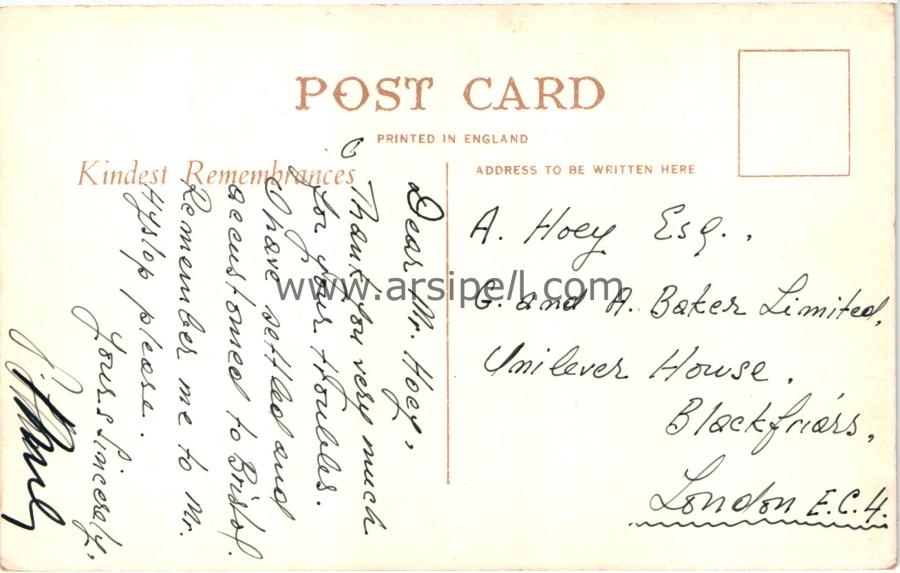 POST CARD
PRINTED IN ENGLAND
Kindest Remembrances
ADDRESS TO BE WRITTEN HERE
Dear Mr. Hoey,
Thank you very much
for your troubles.
I have settled and
accustomed to Bristol.
Remember me to Mr.
Hyslop please.
Yours Sincerely,
A. Hoey Esq.,
G. and A. Baker Limited,
Unilever House,
Blackfriars,
London E.C.4.
www.arsipell.com